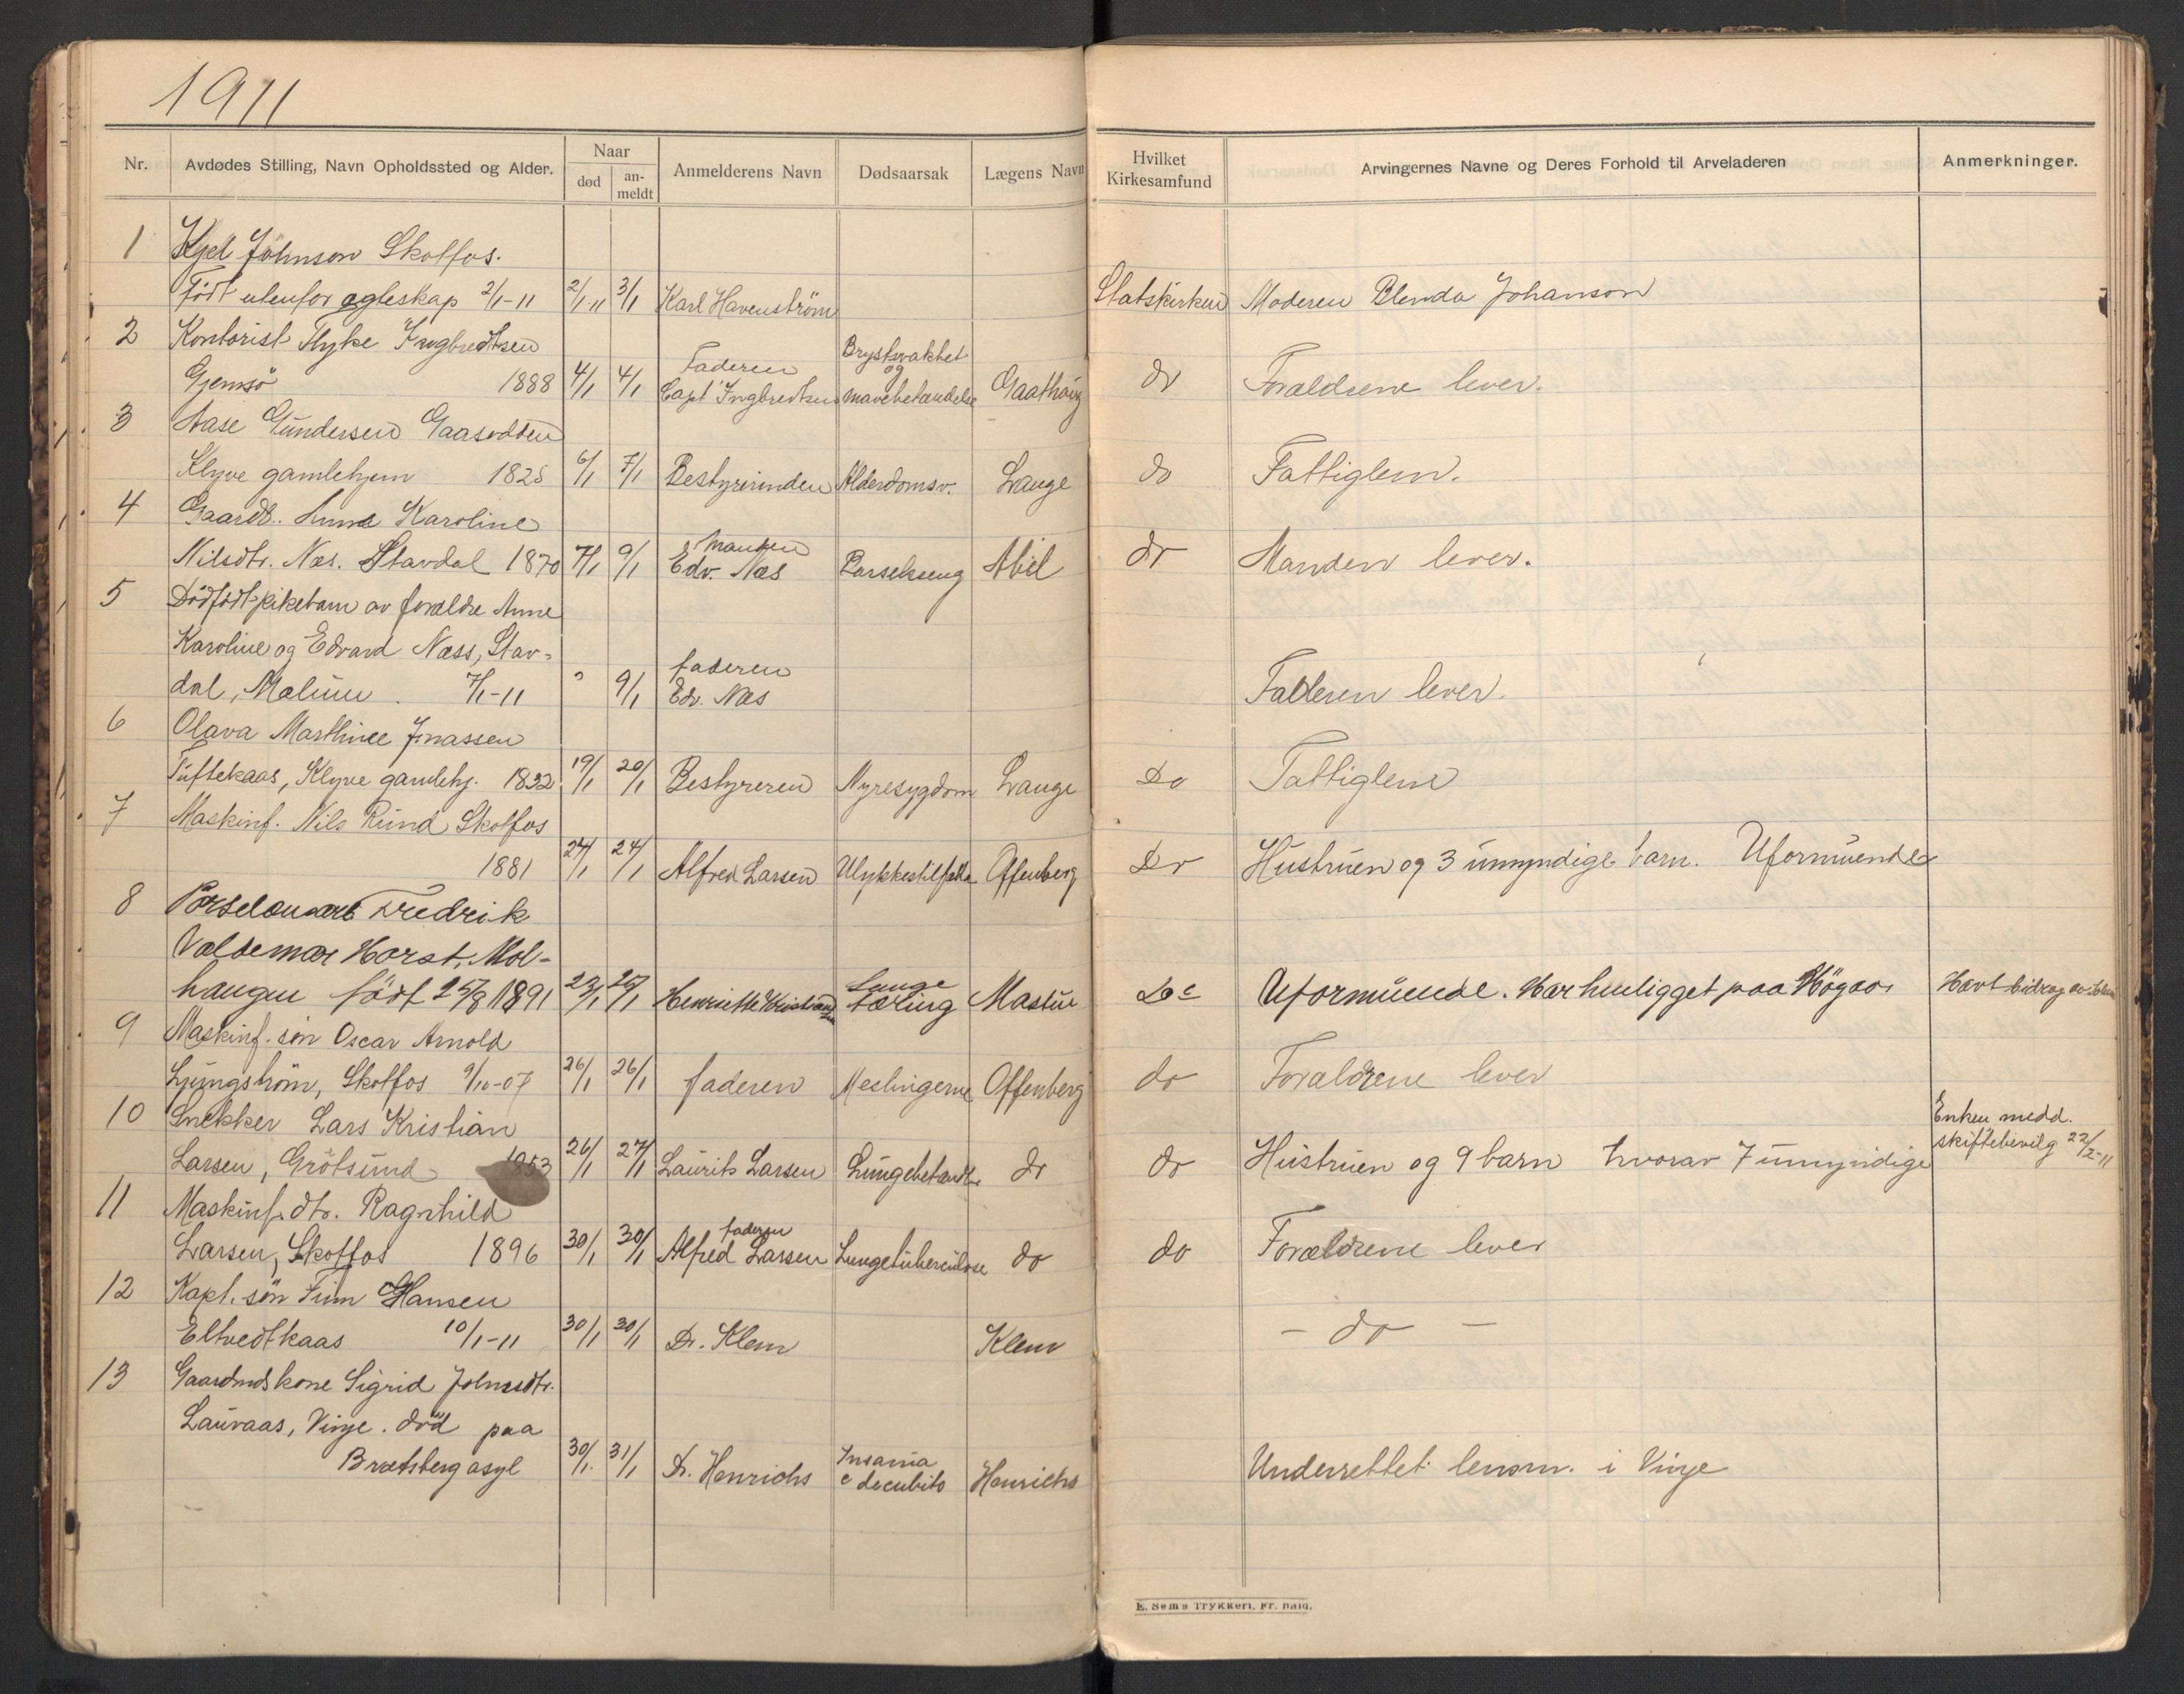 1911
Nr. Avdødes Stilling, Navn Opholdssted og Alder. Naar død an-meldt Anmelderens Navn Dødsaarsak Lægens Navn Hvilket Kirkesamfund Arvingernes Navne og Deres Forhold til Arveladeren Anmerkninger.
1 Kjel Johnson Skotfos.
Født utenfor egteskap 2/1-11 2/1-11 3/1 Karl Havenström Statskirken Moderen Blenda Johanson
2 Kontorist Thyke Ingbredtsen Brystsvakhet
Gjemsö 1888 4/1 4/1 Faderen Capt Ingbredtsen og mavebetændelse Gaathaug do Foraldrene lever.
3 Aase Gundersen Gaasodden
Klyve gamlehjem 1825 6/1 7/1 Bestyrerinden Alderdomsv. Lange do Fattiglem.
4 Gaardb. Anna Karoline
Nilsdtr. Næs. Stavdal 1870 7/1 9/1 Manden Edv. Næs Barselseng Abil do Manden lever.
5 Dødfødt pikebarn av forældre Anne
Karoline og Edvard Næss, Stav-
dal, Melum. 7/1-11 " 9/1 faderen Edv. Næs Faderen lever.
6 Olava Marthine Jonassen
Tuftekaas, Klyve gamlehj. 1832 19/1 20/1 Bestyreren Nyresygdom Lange Do Fattiglem
7 Maskinf. Nils Rund Skotfos
1881 24/1 24/1 Alfred Larsen Ulykkestilfælde Offenberg Do Hustruen og 3 umyndige barn. Uformuende
8 Porselensarb Fredrik
Valdemar Horst, Mol-
haugen født 25/8 1891 23/1 25/1 Henriette Kristiansen Lunge tæring Mastue Do Uformuende. Har henligget paa Högaas Havt bidrag av
9 Maskinf. søn Oscar Arnold
Ljungström, Skotfos 9/10-07 26/1 26/1 faderen Meslingerne Offenberg do Foraldrene lever
10 Snekker Lars Kristian Enken medd.
Larsen, Grötsund 1853 26/1 27/1 Laurits Larsen Lungebetændelse do do Hustruen og 9 barn hvorav 7 umyndige skiftebevilg 22/2-11
11 Maskinf. dtr. Ragnhild
Larsen, Skotfos 1896 30/1 30/1 faderen Alfred Larsen Lungetuberculose do do Forældrene lever
12 Kapt. søn Finn Hansen
Eltvedtkaas 10/1-11 30/1 30/1 Dr. Klem Klem - do -
13 Gaardmdskone Sigrid Johnsdtr.
Lauvaas, Vinje. død paa
Bratsberg asyl 30/1 31/1 Dr. Henrichs Insania c decubits Henrichs Underrettet lensm. i Vinje
E. Sems Trykkeri, Fr. hald.